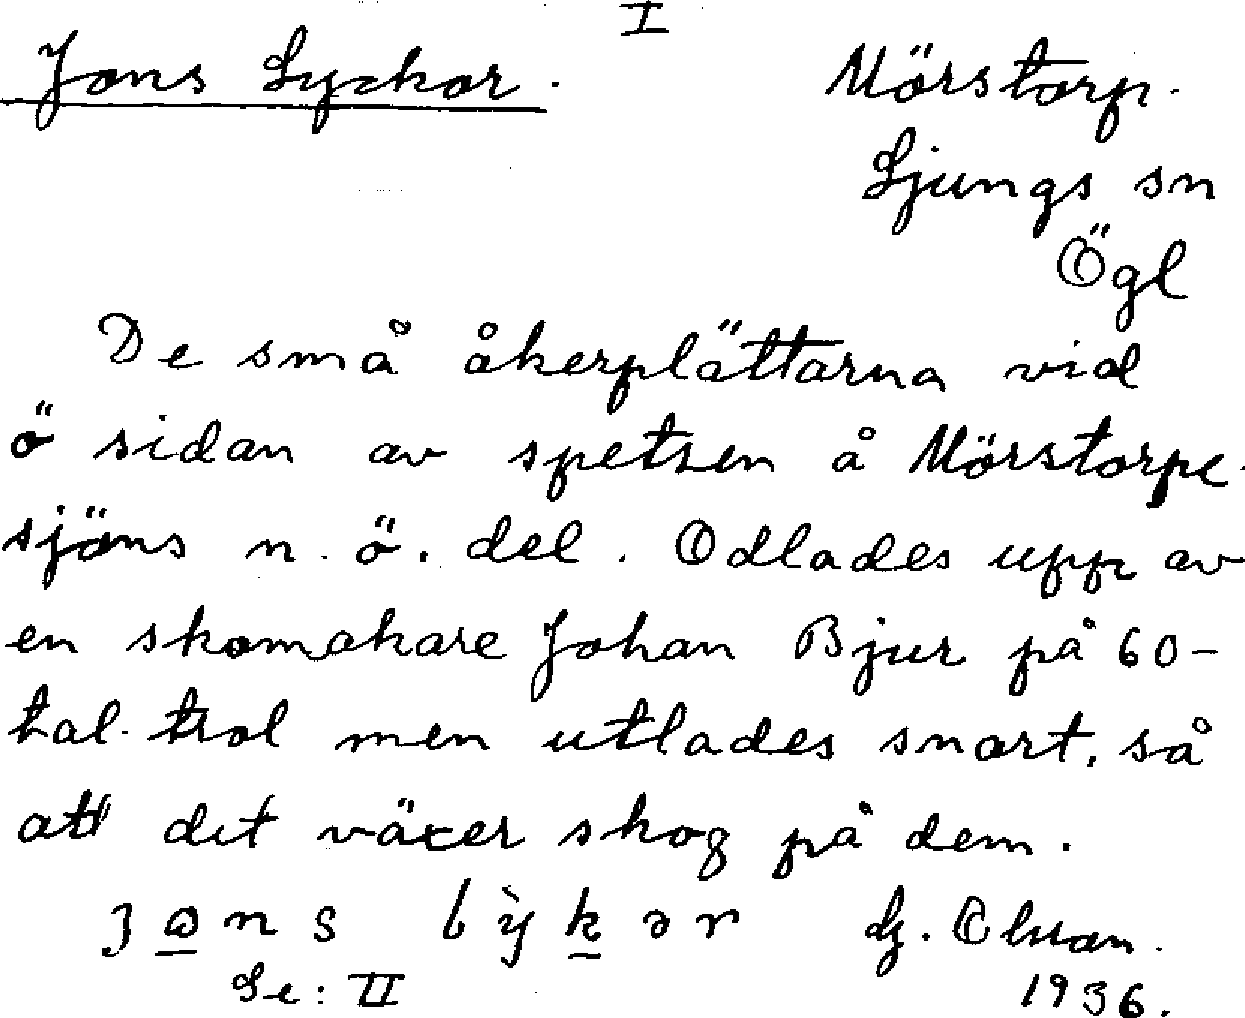 I
Jons Lyckor. Mörstorp.
Ljungs sn
Ögl
De små åkerplättarna vid
ö sidan av spetsen å Mörstorpe-
sjöns n. ö. del. Odlades upp av
en skomakare Johan Bjur på 60-
tal. trol men utlades snart, så
att det växer skog på dem.
G. Olsson.
Se: II 1936.